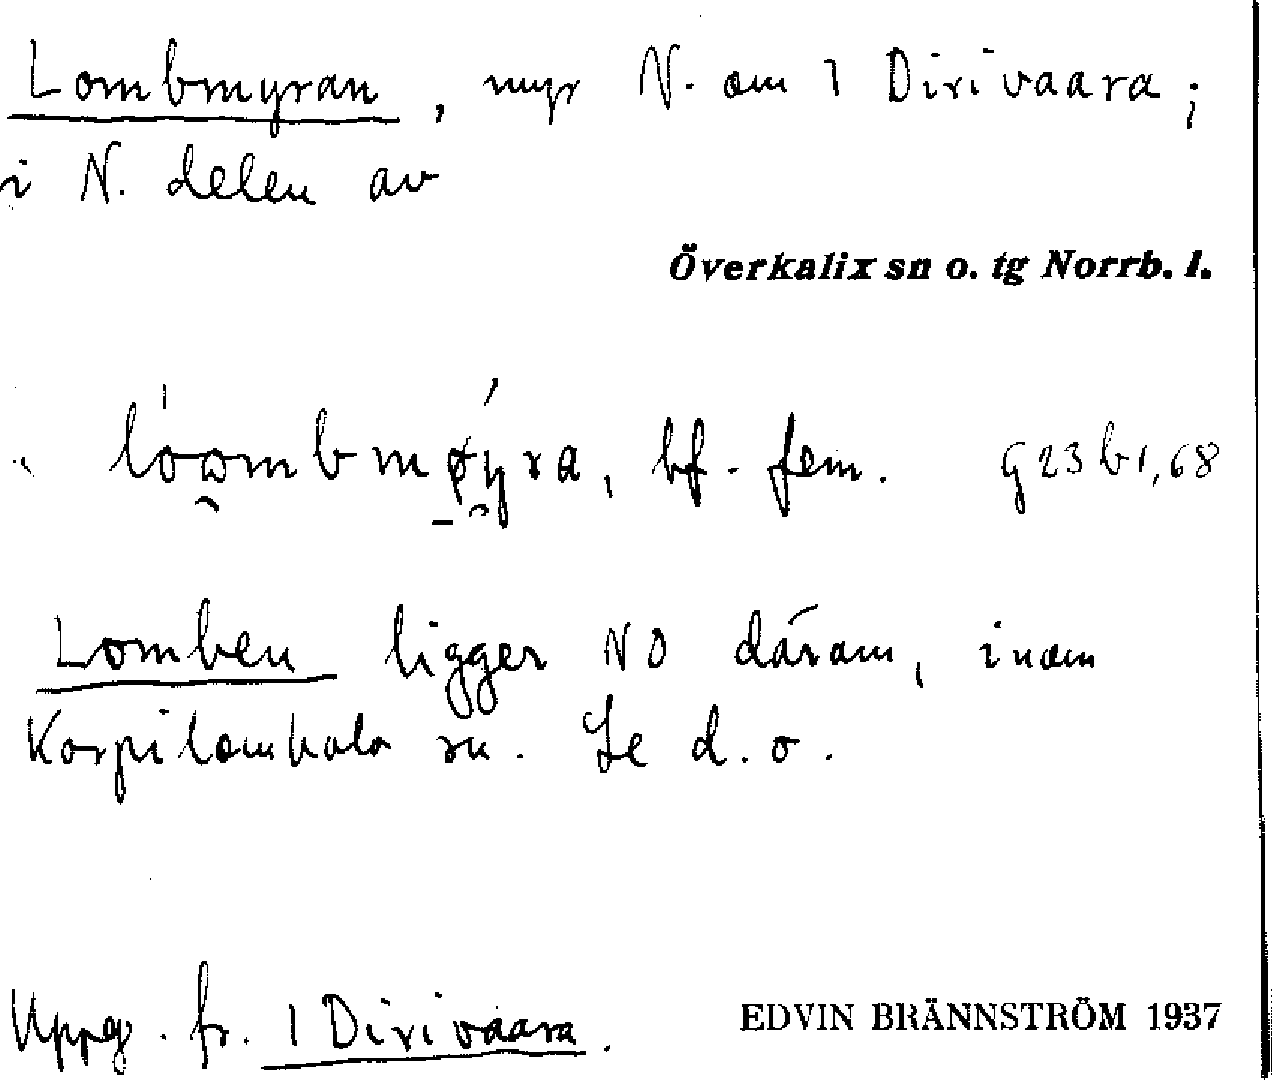 Lombmyran, myr N. om 1 Dirivaara;
i N. delen av
Överkalix sn o. tg Norrb. l.
lòombmøyra, bf. fem. G23 b1,68
Lomben ligger NO därom, inom
Korpilombolo sn. Se d. o.
Uppg. fr. 1 Dirivaara.
EDVIN BRÄNNSTRÖM 1937